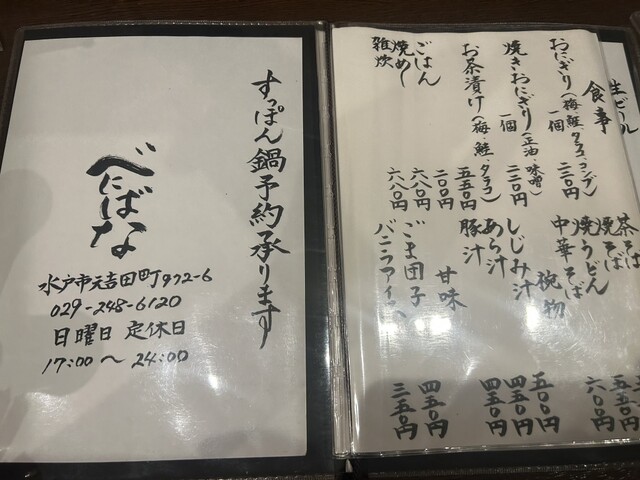 すっぽん鍋予約承ります
べにばな
水戸市元吉田町972-6
029-248-6120
日曜日 定休日
17:00～24:00
生ビール
食事
おにぎり(梅、鮭、タラコ、コンブ)
一個 二二〇円
焼きおにぎり(正油・味噌)
一個 二二〇円
お茶漬け(梅・鮭・タラコ) 五五〇円
ごはん 二〇〇円
焼めし 六八〇円
雑炊 六八〇円
茶そば
焼そば 五五〇円
焼うどん
中華そば 六〇〇円
椀物
しじみ汁 五〇〇円
あら汁 四五〇円
豚汁 四五〇円
甘味
ごま団子 四五〇円
バニラアイス 三五〇円